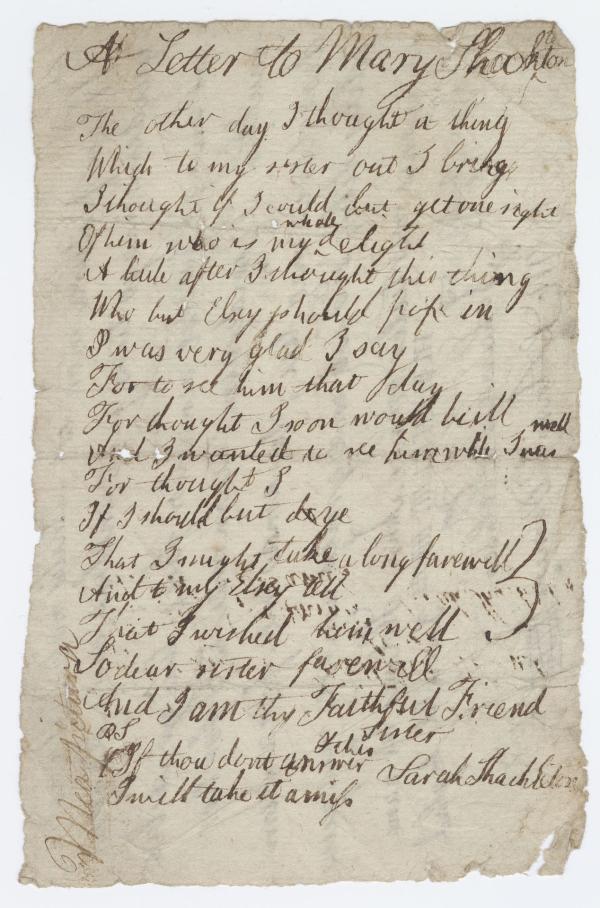 A Letter to Mary Shackleton
The other day I thought a thing
Which to my sister out I bring
I thought if I could but get one sight
Of him who is my whole delight
A little after I thought this thing
Who but Elsey should pop in
I was very glad I say
For to see him that day
For thought I soon would be ill
And I wanted to see him while I was well
For thought I
If I should but dye
That I might take a long farewell
And to my Elsey tell
That I wished him well
So dear sister farewell
And I am thy Faithful Friend
Sister
Sarah Shackleton
PS
If thou dont answer this
I will take it amiss